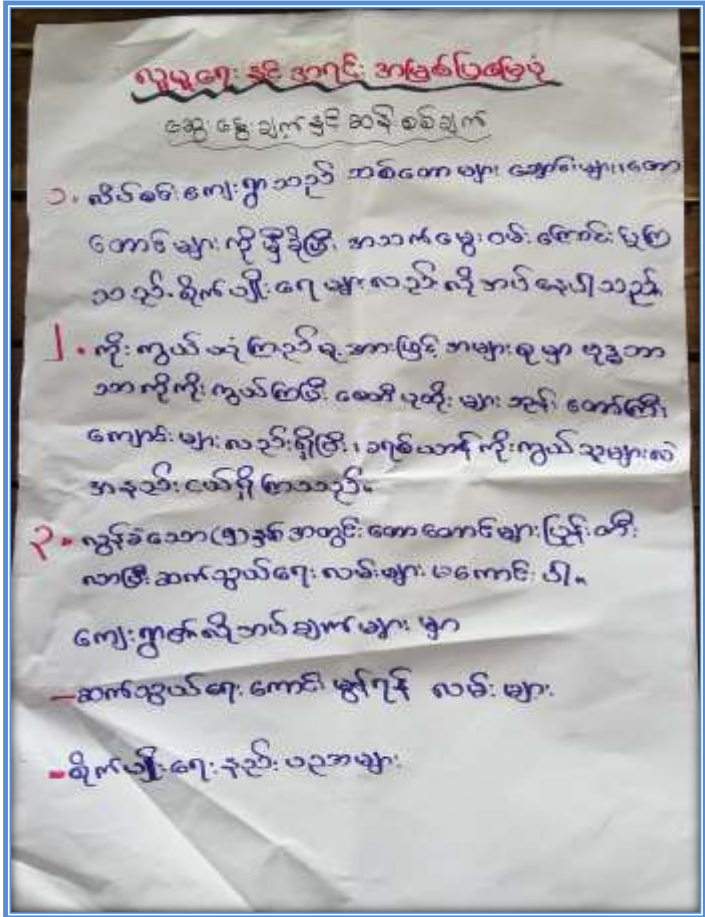 လူမှုရေး နှင့် အရင်း အမြစ်ပြမြေပုံ
ဆွေး နွေး ချက် နှင့် ဆန်း စစ်ချက်
၁. လိပ်စင်းကျေးရွာသည် သစ်တောများ ချောင်းများ၊တော
တောင်များကိုမှီခိုပြီး အသက်မွေးဝမ်းကြောင်းပြုကြ
သည်.စိုက်ပျိုးရေများလည်းလိုအပ်နေပါသည်.
၂. ကိုးကွယ်ယုံကြည်မှုအားဖြင့် အများစုမှာ ဗုဒ္ဓဘာ
သာကိုကိုးကွယ်ကြပြီး စေတီပုထိုးများ ဘုန်းတော်ကြီး
ကျောင်းများလည်းရှိပြီး၊ ခရစ်ယာန်ကိုးကွယ်သူများလဲ
အနည်းငယ်ရှိကြသည်။
၃. လွန်ခဲ့သော(၅)နှစ်အတွင်းတောတောင်များပြုန်းတီး
လာပြီးဆက်သွယ်ရေးလမ်းများမကောင်းပါ။
ကျေးရွာ၏လိုအပ်ချက်များမှာ
–ဆက်သွယ်ရေးကောင်းမွန်ရန် လမ်းများ
–စိုက်ပျိုးရေးနည်းပညာများ